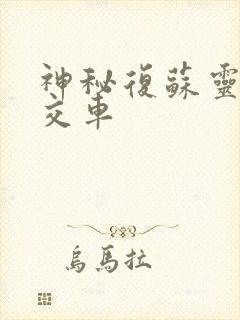 神秘復蘇靈
交車
烏馬拉